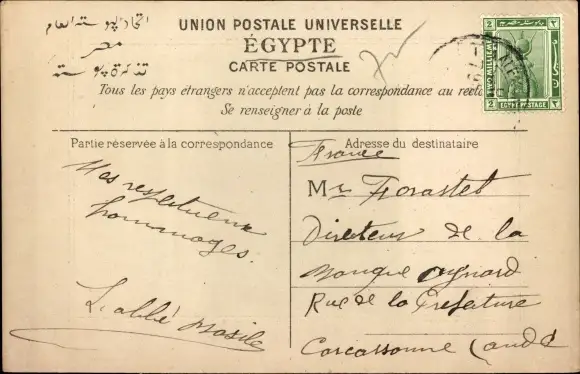 اتحاد البوستة العام
مصر
تذكرة بوستة
UNION POSTALE UNIVERSELLE
ÉGYPTE
CARTE POSTALE
Tous les pays étrangers n'acceptent pas la correspondance au recto
Se renseigner à la poste
2
2
EGYPT POSTAGE
Partie réservée à la correspondance
Mes respectueux
hommages.
L'abbé Basile
Adresse du destinataire
France
Mr Forastet
Directeur de la
Banque
Rue de la Préfecture
Carcassonne (Aude